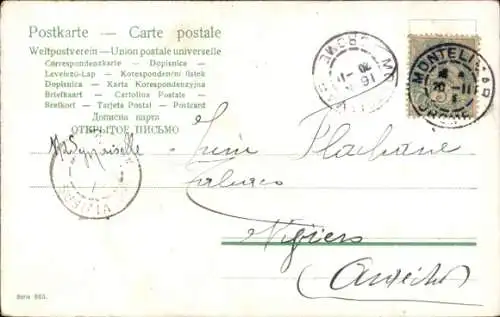 Postkarte — Carte postale
Weltpostverein — Union postale universelle
Correspondenzkarte - Dopisnica -
Levelező-Lap - Korespondenční lístek
Dopisnica - Karta Korespondencyjna
Briefkaart - Cartolina Postale -
Brefkort - Tarjeta Postal - Postcard
Дописна карта
ОТКРЫТОЕ ПИСЬМО
MONTELIMAR
DROME
DROME
20
Tabacs
Viviers
(Ardèche)
Serie 865.